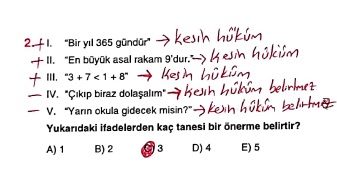 2. + I. "Bir yıl 365 gündür" → kesin hüküm
+ II. "En büyük asal rakam 9'dur." → kesin hüküm
+ III. "3 + 7 < 1 + 8" → kesin hüküm
— IV. "Çıkıp biraz dolaşalım" → kesin hüküm belirtmez
— V. "Yarın okula gidecek misin?" → kesin hüküm belirtmez
Yukarıdaki ifadelerden kaç tanesi bir önerme belirtir?
A) 1 B) 2 C) 3 D) 4 E) 5